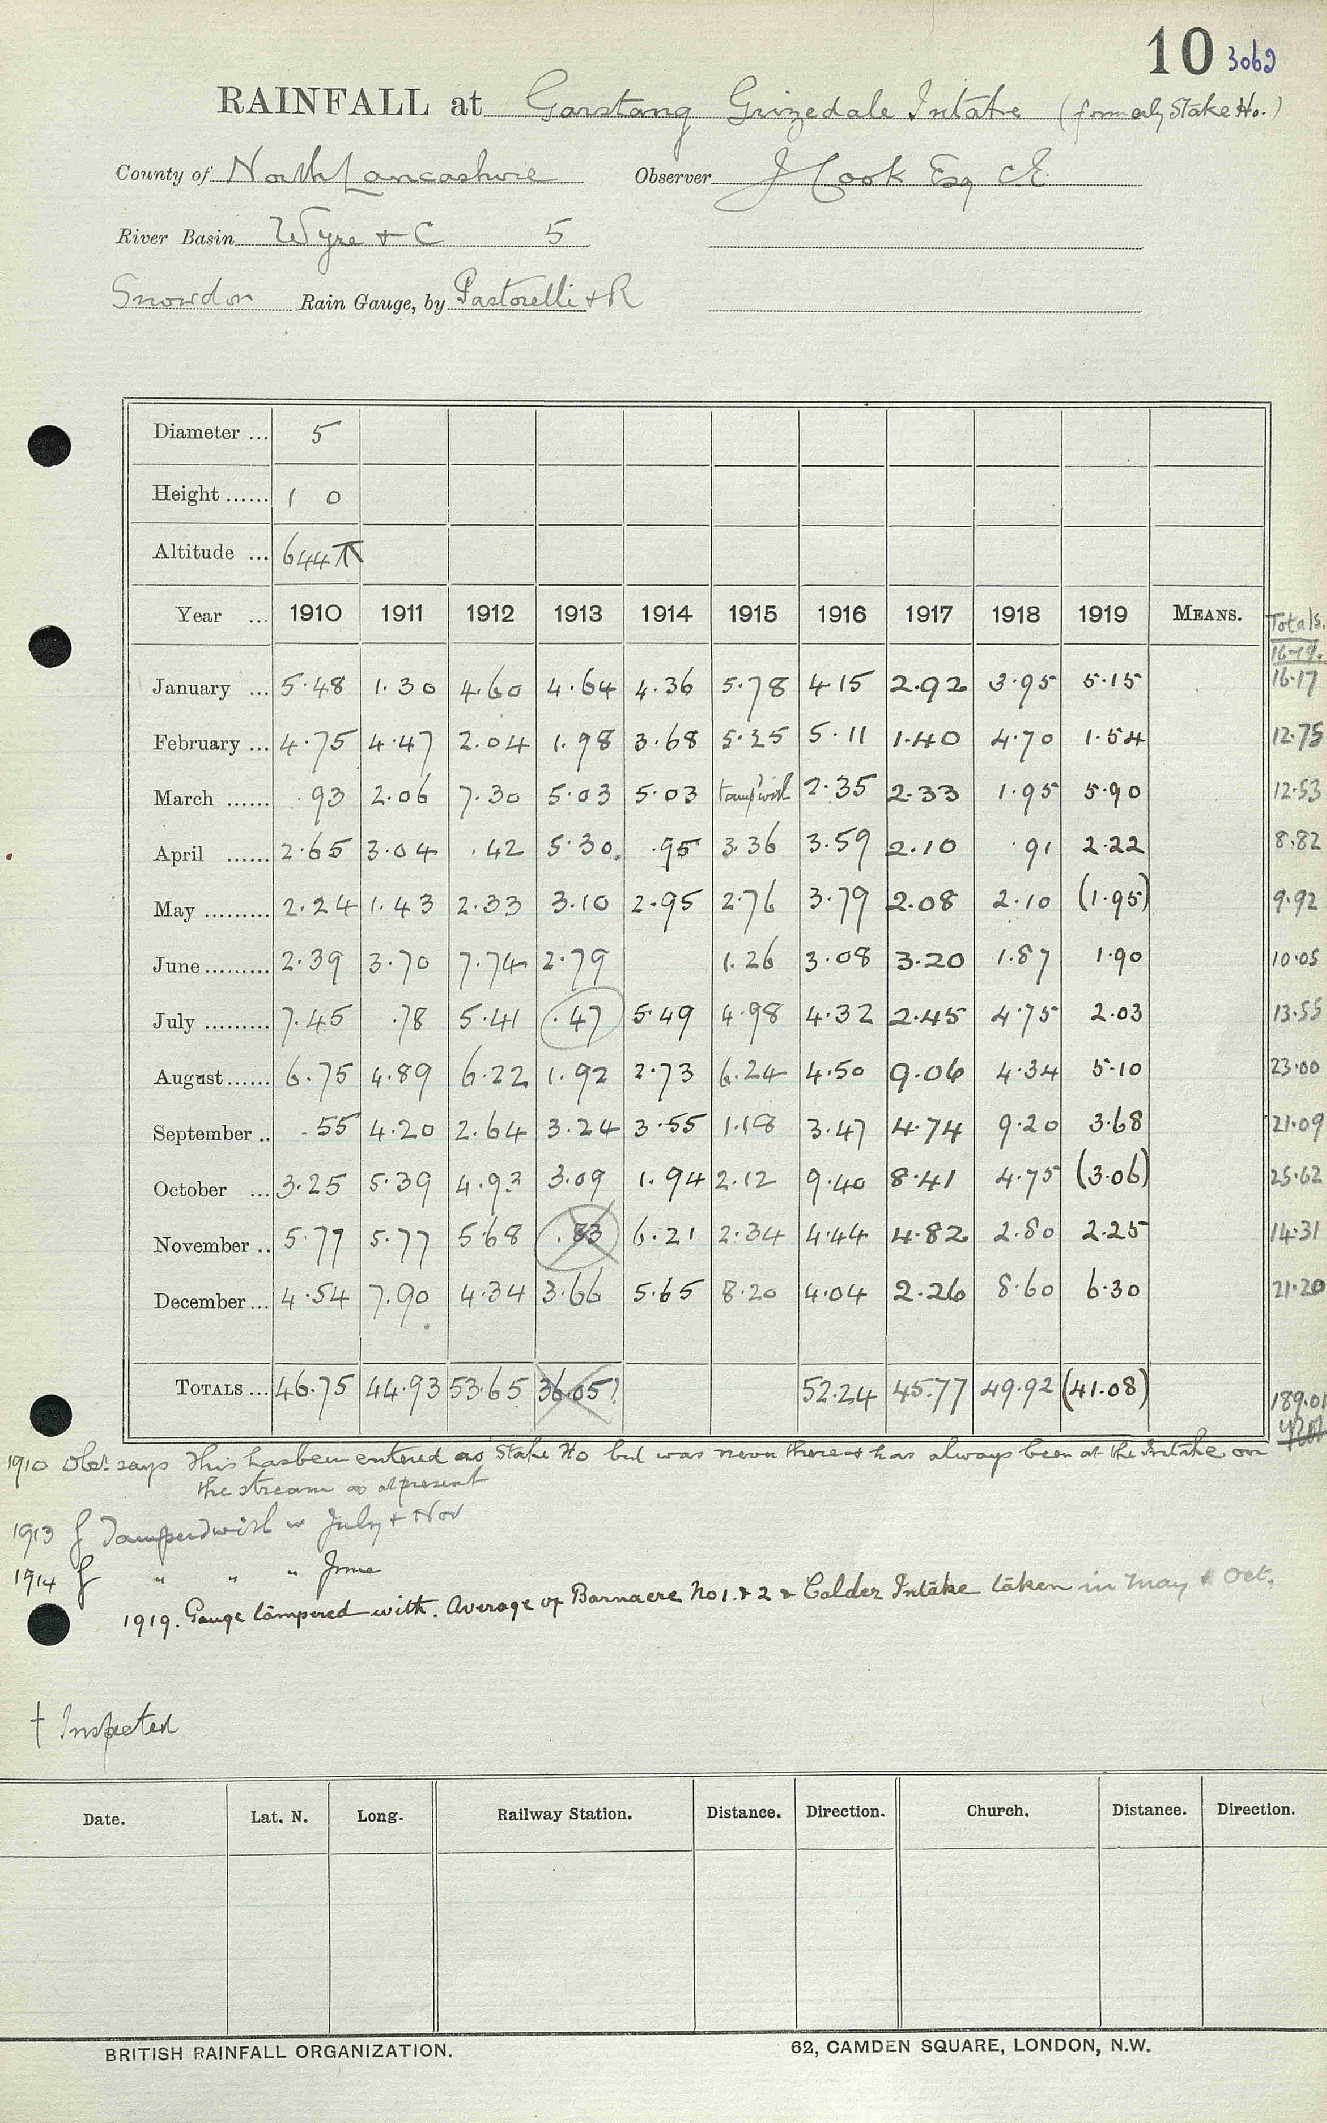 10 3069
RAINFALL at Garstang Grizedale Intake (formerly Stake Ho.)
County of North Lancashire Observer J Cook Esq CE
River Basin Wyre & C 5
Snowdon Rain Gauge, by Pastorelli & R
Diameter ... 5
Height ...... 1 0
Altitude ... 644
Year ... 1910 1911 1912 1913 1914 1915 1916 1917 1918 1919 MEANS. Totals. 16-19.
January ... 5.48 1.30 4.60 4.64 4.36 5.78 4.15 2.92 3.95 5.15 16.17
February ... 4.75 4.47 2.04 1.98 3.68 5.25 5.11 1.40 4.70 1.54 12.75
March ...... .93 2.06 7.30 5.03 5.03 tamp'd with 2.35 2.33 1.95 5.90 12.53
April ...... 2.65 3.04 .42 5.30 .95 3.36 3.59 2.10 .91 2.22 8.82
May ......... 2.24 1.43 2.33 3.10 2.95 2.76 3.79 2.08 2.10 (1.95) 9.92
June ......... 2.39 3.70 7.74 2.79 1.26 3.08 3.20 1.87 1.90 10.05
July ......... 7.45 .78 5.41 .47 5.49 4.98 4.32 2.45 4.75 2.03 13.55
August ...... 6.75 4.89 6.22 1.92 2.73 6.24 4.50 9.06 4.34 5.10 23.00
September .. .55 4.20 2.64 3.24 3.55 1.18 3.47 4.74 9.20 3.68 21.09
October ... 3.25 5.39 4.93 3.09 1.94 2.12 9.40 8.41 4.75 (3.06) 25.62
November .. 5.77 5.77 5.68 .83 6.21 2.34 4.44 4.82 2.80 2.25 14.31
December ... 4.54 7.90 4.34 3.66 5.65 8.20 4.04 2.26 8.60 6.30 21.20
TOTALS ... 46.75 44.93 53.65 36.05? 52.24 45.77 49.92 (41.08) 189.01
1910 Obsr. says this has been entered as Stake Ho but was never there & has always been at the Intake on
the stream as at present
1913 Tampered with in July & Nov
1914 " " " June
1919. Gauge tampered with. Average of Barnacre No 1. & 2 & Calder Intake taken in May & Oct.
† Inspected
Date. Lat. N. Long. Railway Station. Distance. Direction. Church. Distance. Direction.
BRITISH RAINFALL ORGANIZATION. 62, CAMDEN SQUARE, LONDON, N.W.